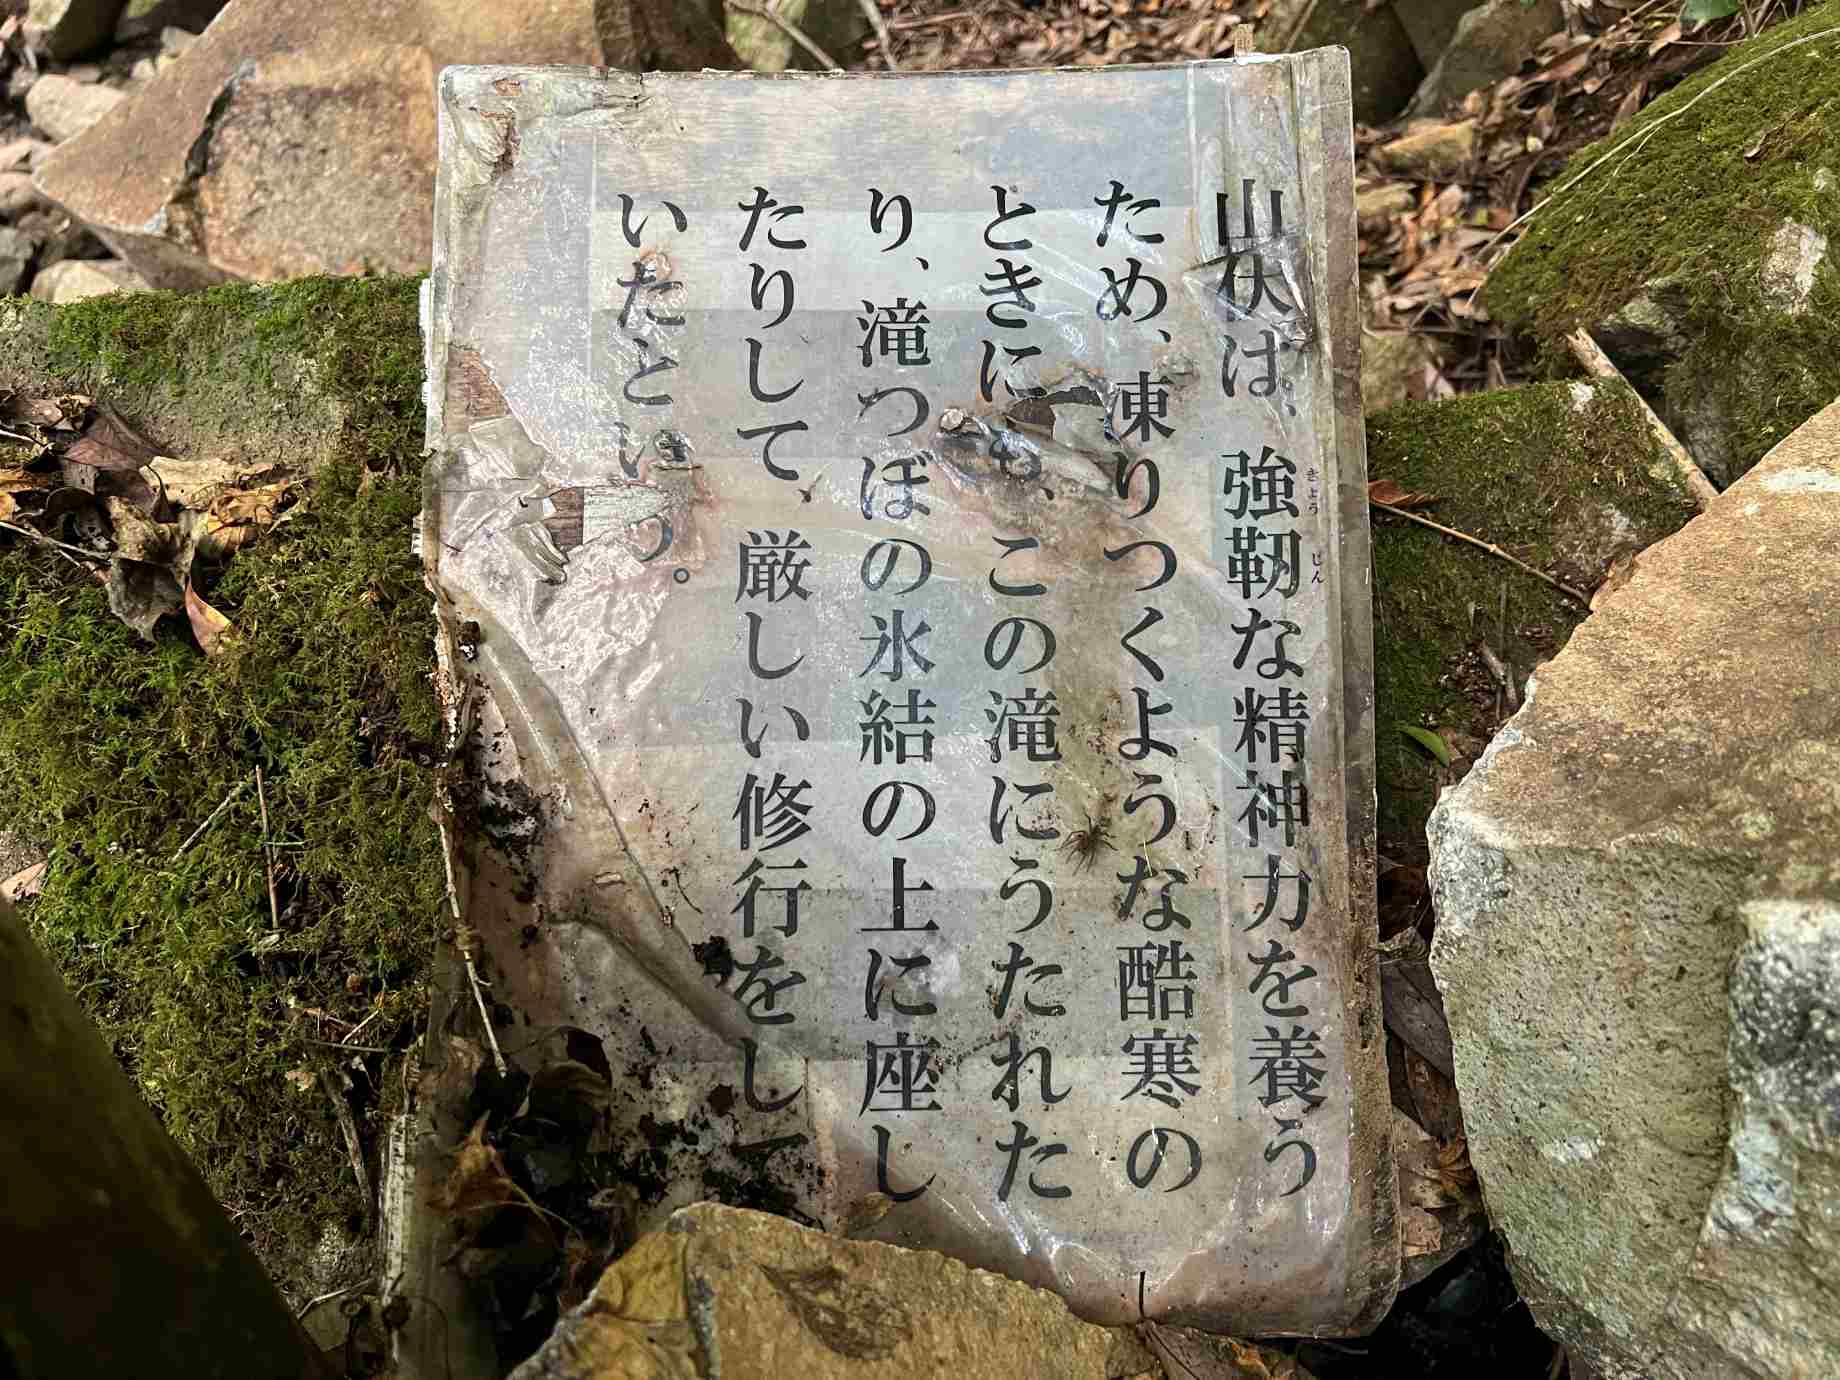 山伏は、強靭な精神力を養う
きょうじん
ため、凍りつくような酷寒の
ときにも、この滝にうたれた
り、滝つぼの氷結の上に座し
たりして、厳しい修行をして
いたという。